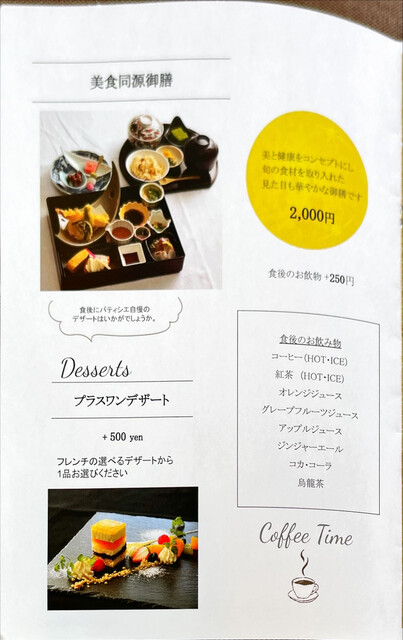 美食同源御膳
美と健康をコンセプトにし
旬の食材を取り入れた
見た目も華やかな御膳です
2,000円
食後のお飲物 +250円
食後にパティシエ自慢の
デザートはいかがでしょうか。
Desserts
プラスワンデザート
+ 500 yen
フレンチの選べるデザートから
1品お選びください
食後のお飲み物
コーヒー(HOT・ICE)
紅茶 (HOT・ICE)
オレンジジュース
グレープフルーツジュース
アップルジュース
ジンジャーエール
コカ・コーラ
烏龍茶
Coffee Time